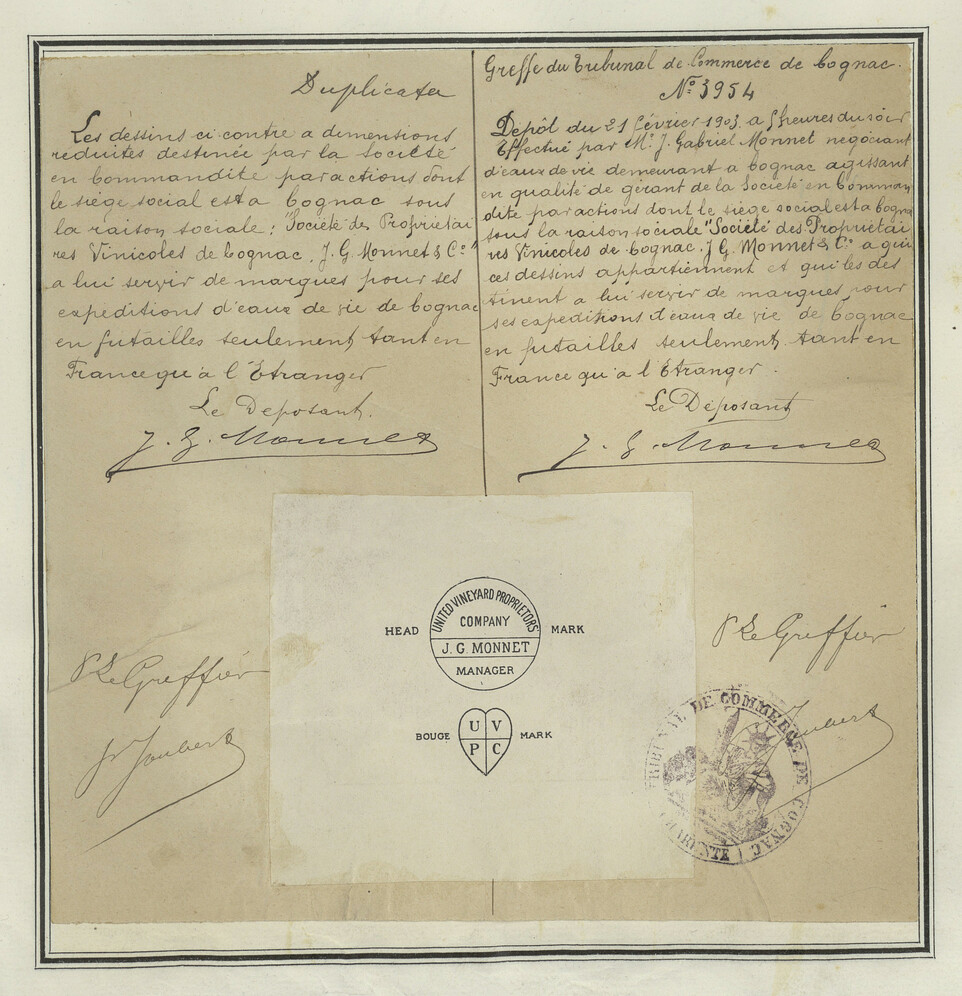 Duplicata
Les dessins ci contre a dimensions
réduites destinée par la Société
en Commandite par actions dont
le siège social est a Cognac sous
la raison sociale: "Société des Propriétai
res Vinicoles de Cognac. J. G. Monnet & Cº"
a lui servir de marques pour ses
expéditions d'eaux de vie de Cognac
en futailles seulement, tant en
France qu'à l'Etranger
Le Déposant.
J. G. Monnet
Pr Le Greffier
Joubert
Greffe du Tribunal de Commerce de Cognac.
Nº 3954
Dépôt du 21 février 1903 a 5 heures du soir
Effectué par Mr J. Gabriel Monnet négociant
d'eaux de vie demeurant a Cognac agissant
en qualité de gérant de la Société en Comman
dite par actions dont le siège social est a Cognac
sous la raison sociale "Société des Propriétai
res Vinicoles de Cognac. J. G. Monnet & Cº a qui
ces dessins appartiennent et qui les des
tinent a lui servir de marques pour
ses expeditions d'eaux de vie de Cognac
en futailles seulement, tant en
France qu'à l'Etranger.
Le Déposant
J. G. Monnet
Pr Le Greffier
Joubert
UNITED VINEYARD PROPRIETORS'
COMPANY
HEAD MARK
J. G. MONNET
MANAGER
BOUGE MARK
U V
P C
TRIBUNAL DE COMMERCE DE COGNAC (CHARENTE)